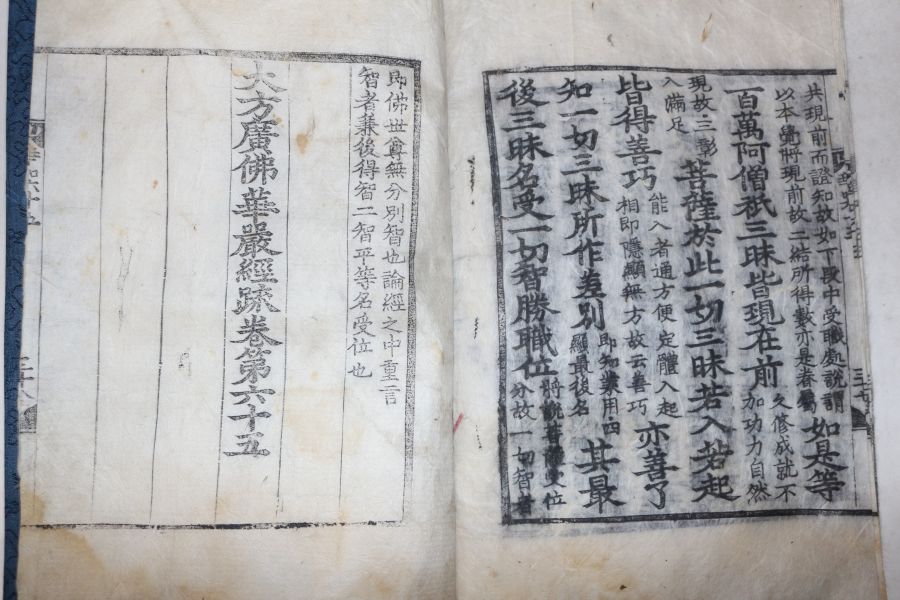 共現前而證知故如下段中受職處說謂
以本覺將現前故二結所得數亦是眷屬
如是等
百萬阿僧祇三昧皆現在前
久修成就不
加功力自然
現故三彰
入滿足
菩薩於此一切三昧若入若起
皆得善巧
能入者通方便定體入起
相即隱顯無方故云善巧
亦善了
知一切三昧所作差別
即知業用四
顯最後名
其最
後三昧名受一切智勝職位
將說菩薩受位
分故一切智者
即佛世尊無分別智也論經之中重言
智者兼後得智二智平等名受位也
大方廣佛華嚴經疏卷第六十五